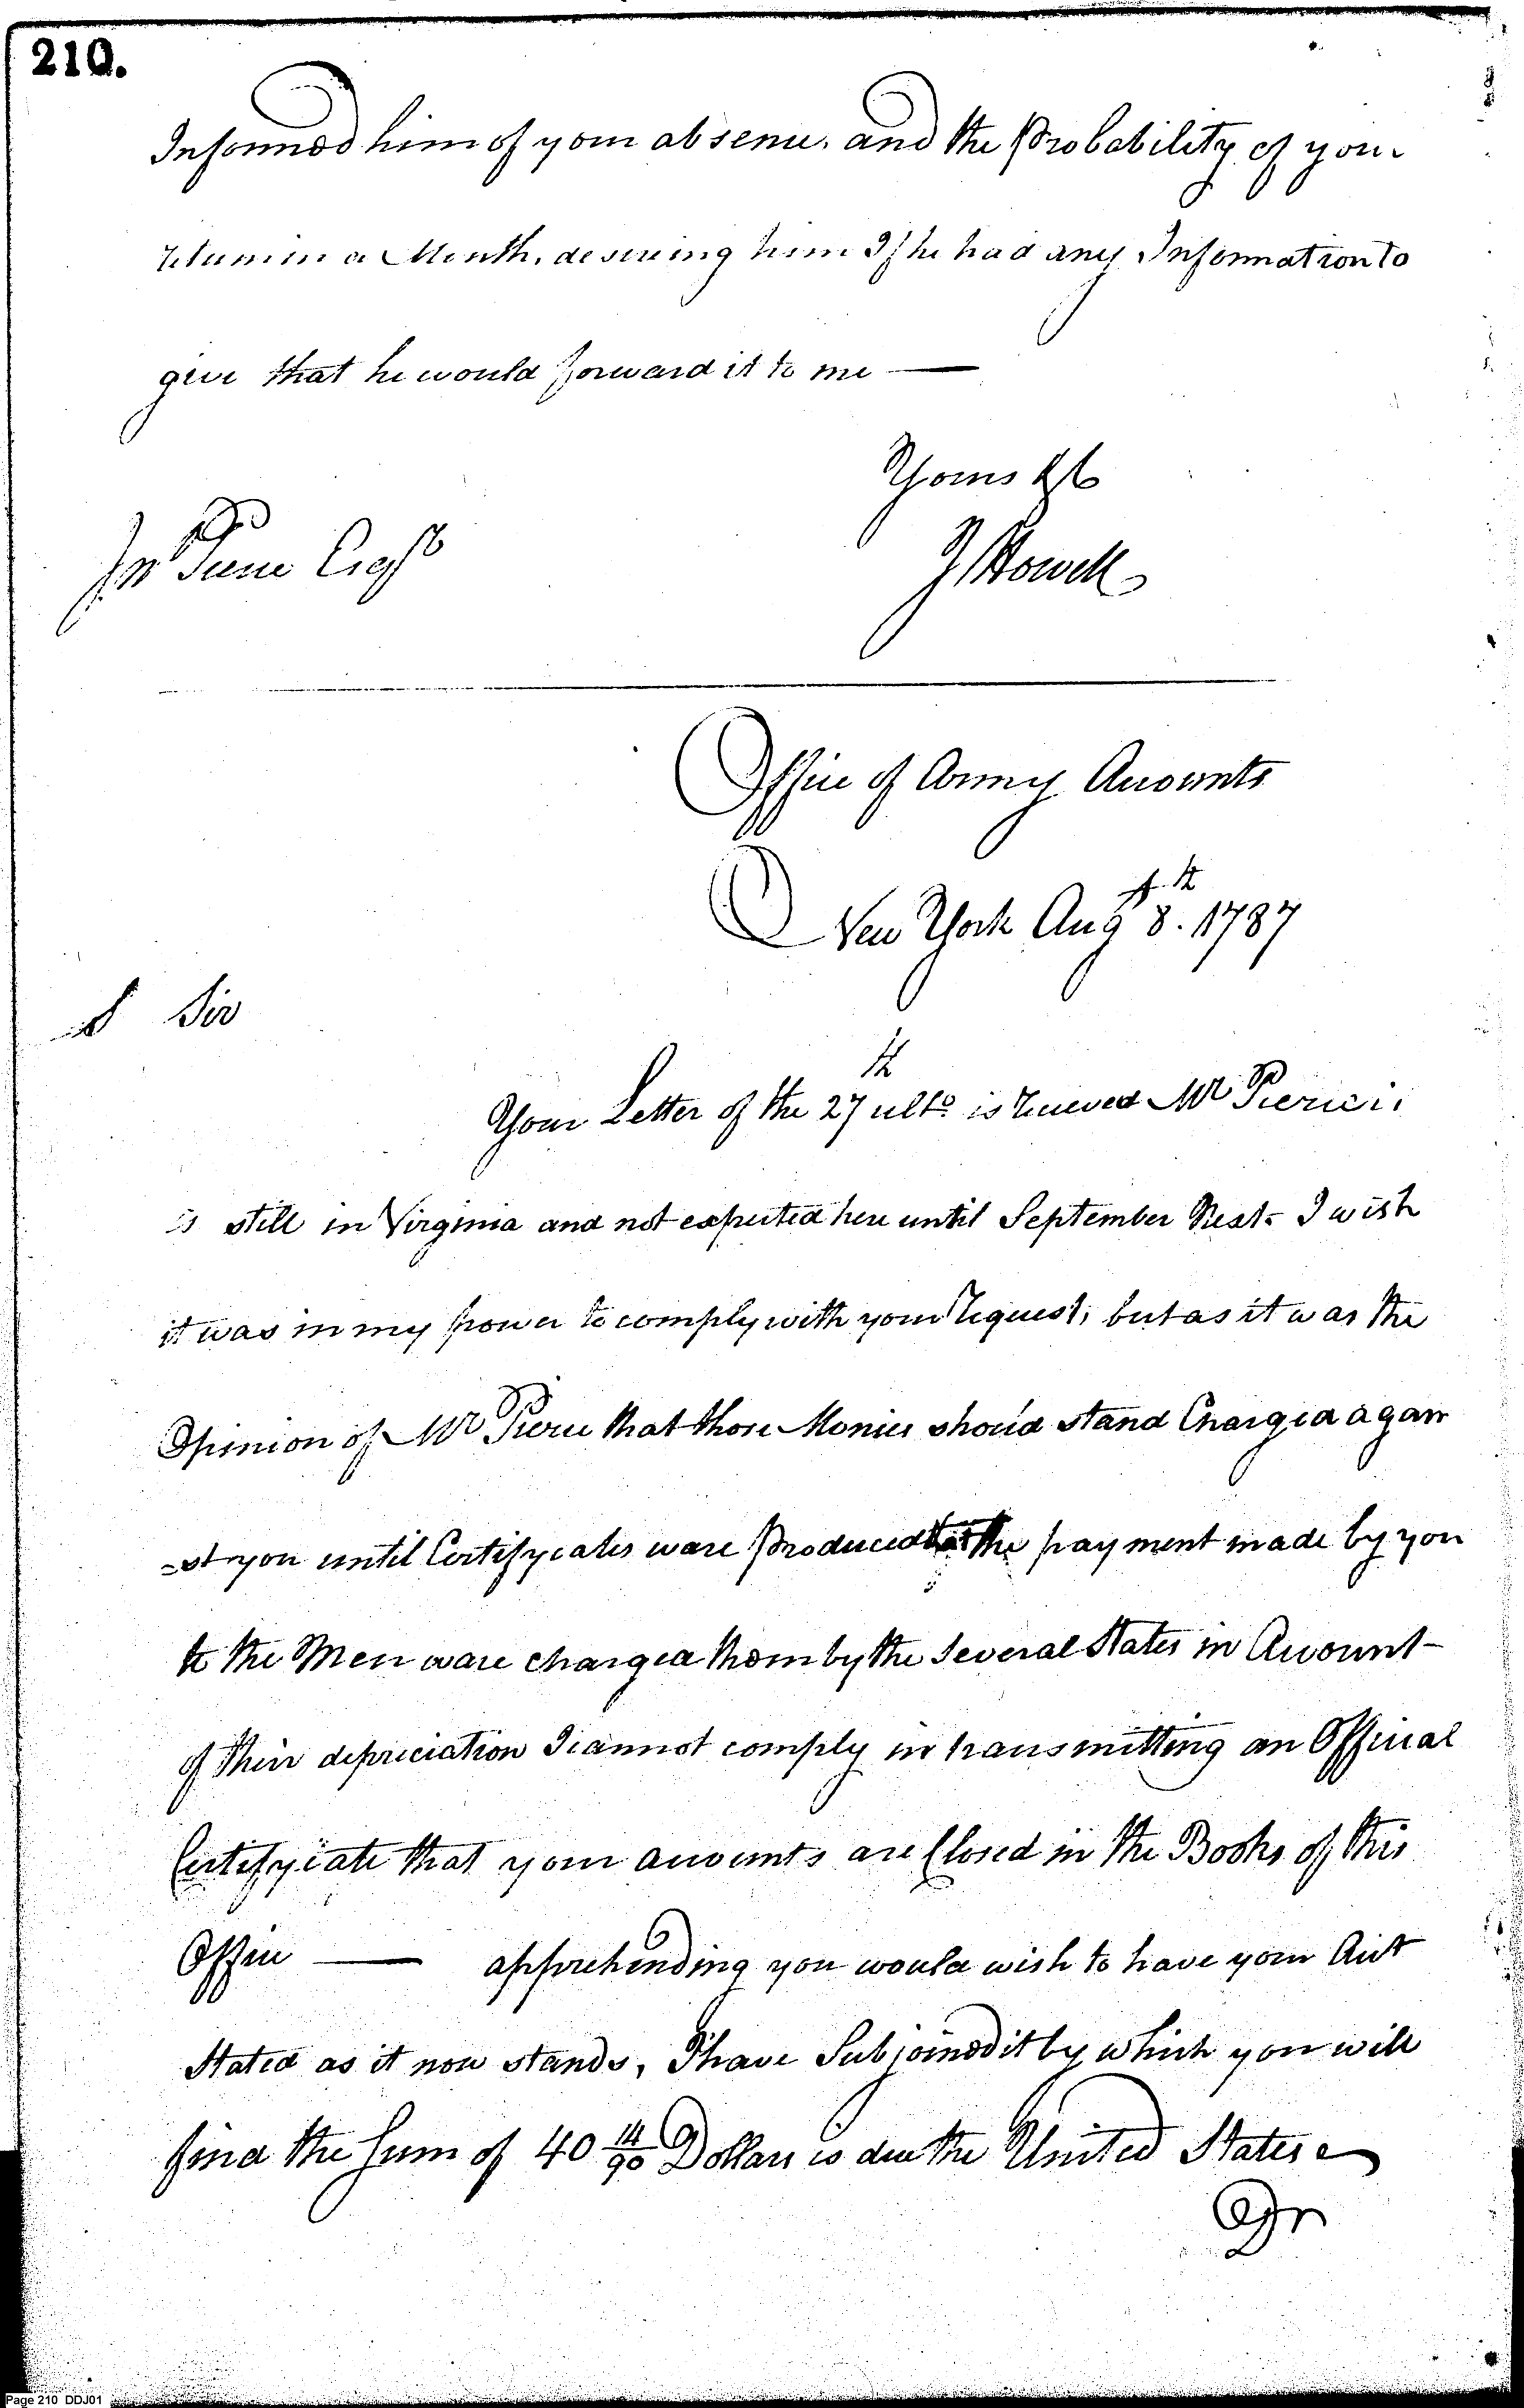 210.
Informed him of your absence. and the Probability of your
return in a Month, desireing him If he had any Information to
give that he would forward it to me —
Yours &c
Jn Pierce Esqr
J Howell
Office of Army Accounts
New York Augt 8th. 1787
Sir
Your Letter of the 27th ulto is recieved Mr Pierce i
is still in Virginia and not expected here until September Next- I wish
it was in my power to comply with your request, but as it was the
Opinion of Mr Pierce that those Monies shou'd stand Charged again
-st you until Certifycates ware Produced that the payment made by you
to the Men ware charged them by the Several States in Account
of their depreciation I cannot comply in transmitting an Official
Certifycate that your accounts are Closed in the Books of this
Office — apprehending you would wish to have your Acct
Stated as it now stands, I have Subjoined it by which you will
find the Sum of 40 14/90 Dollars is due the United States
Dr
Page 210 DDJ01